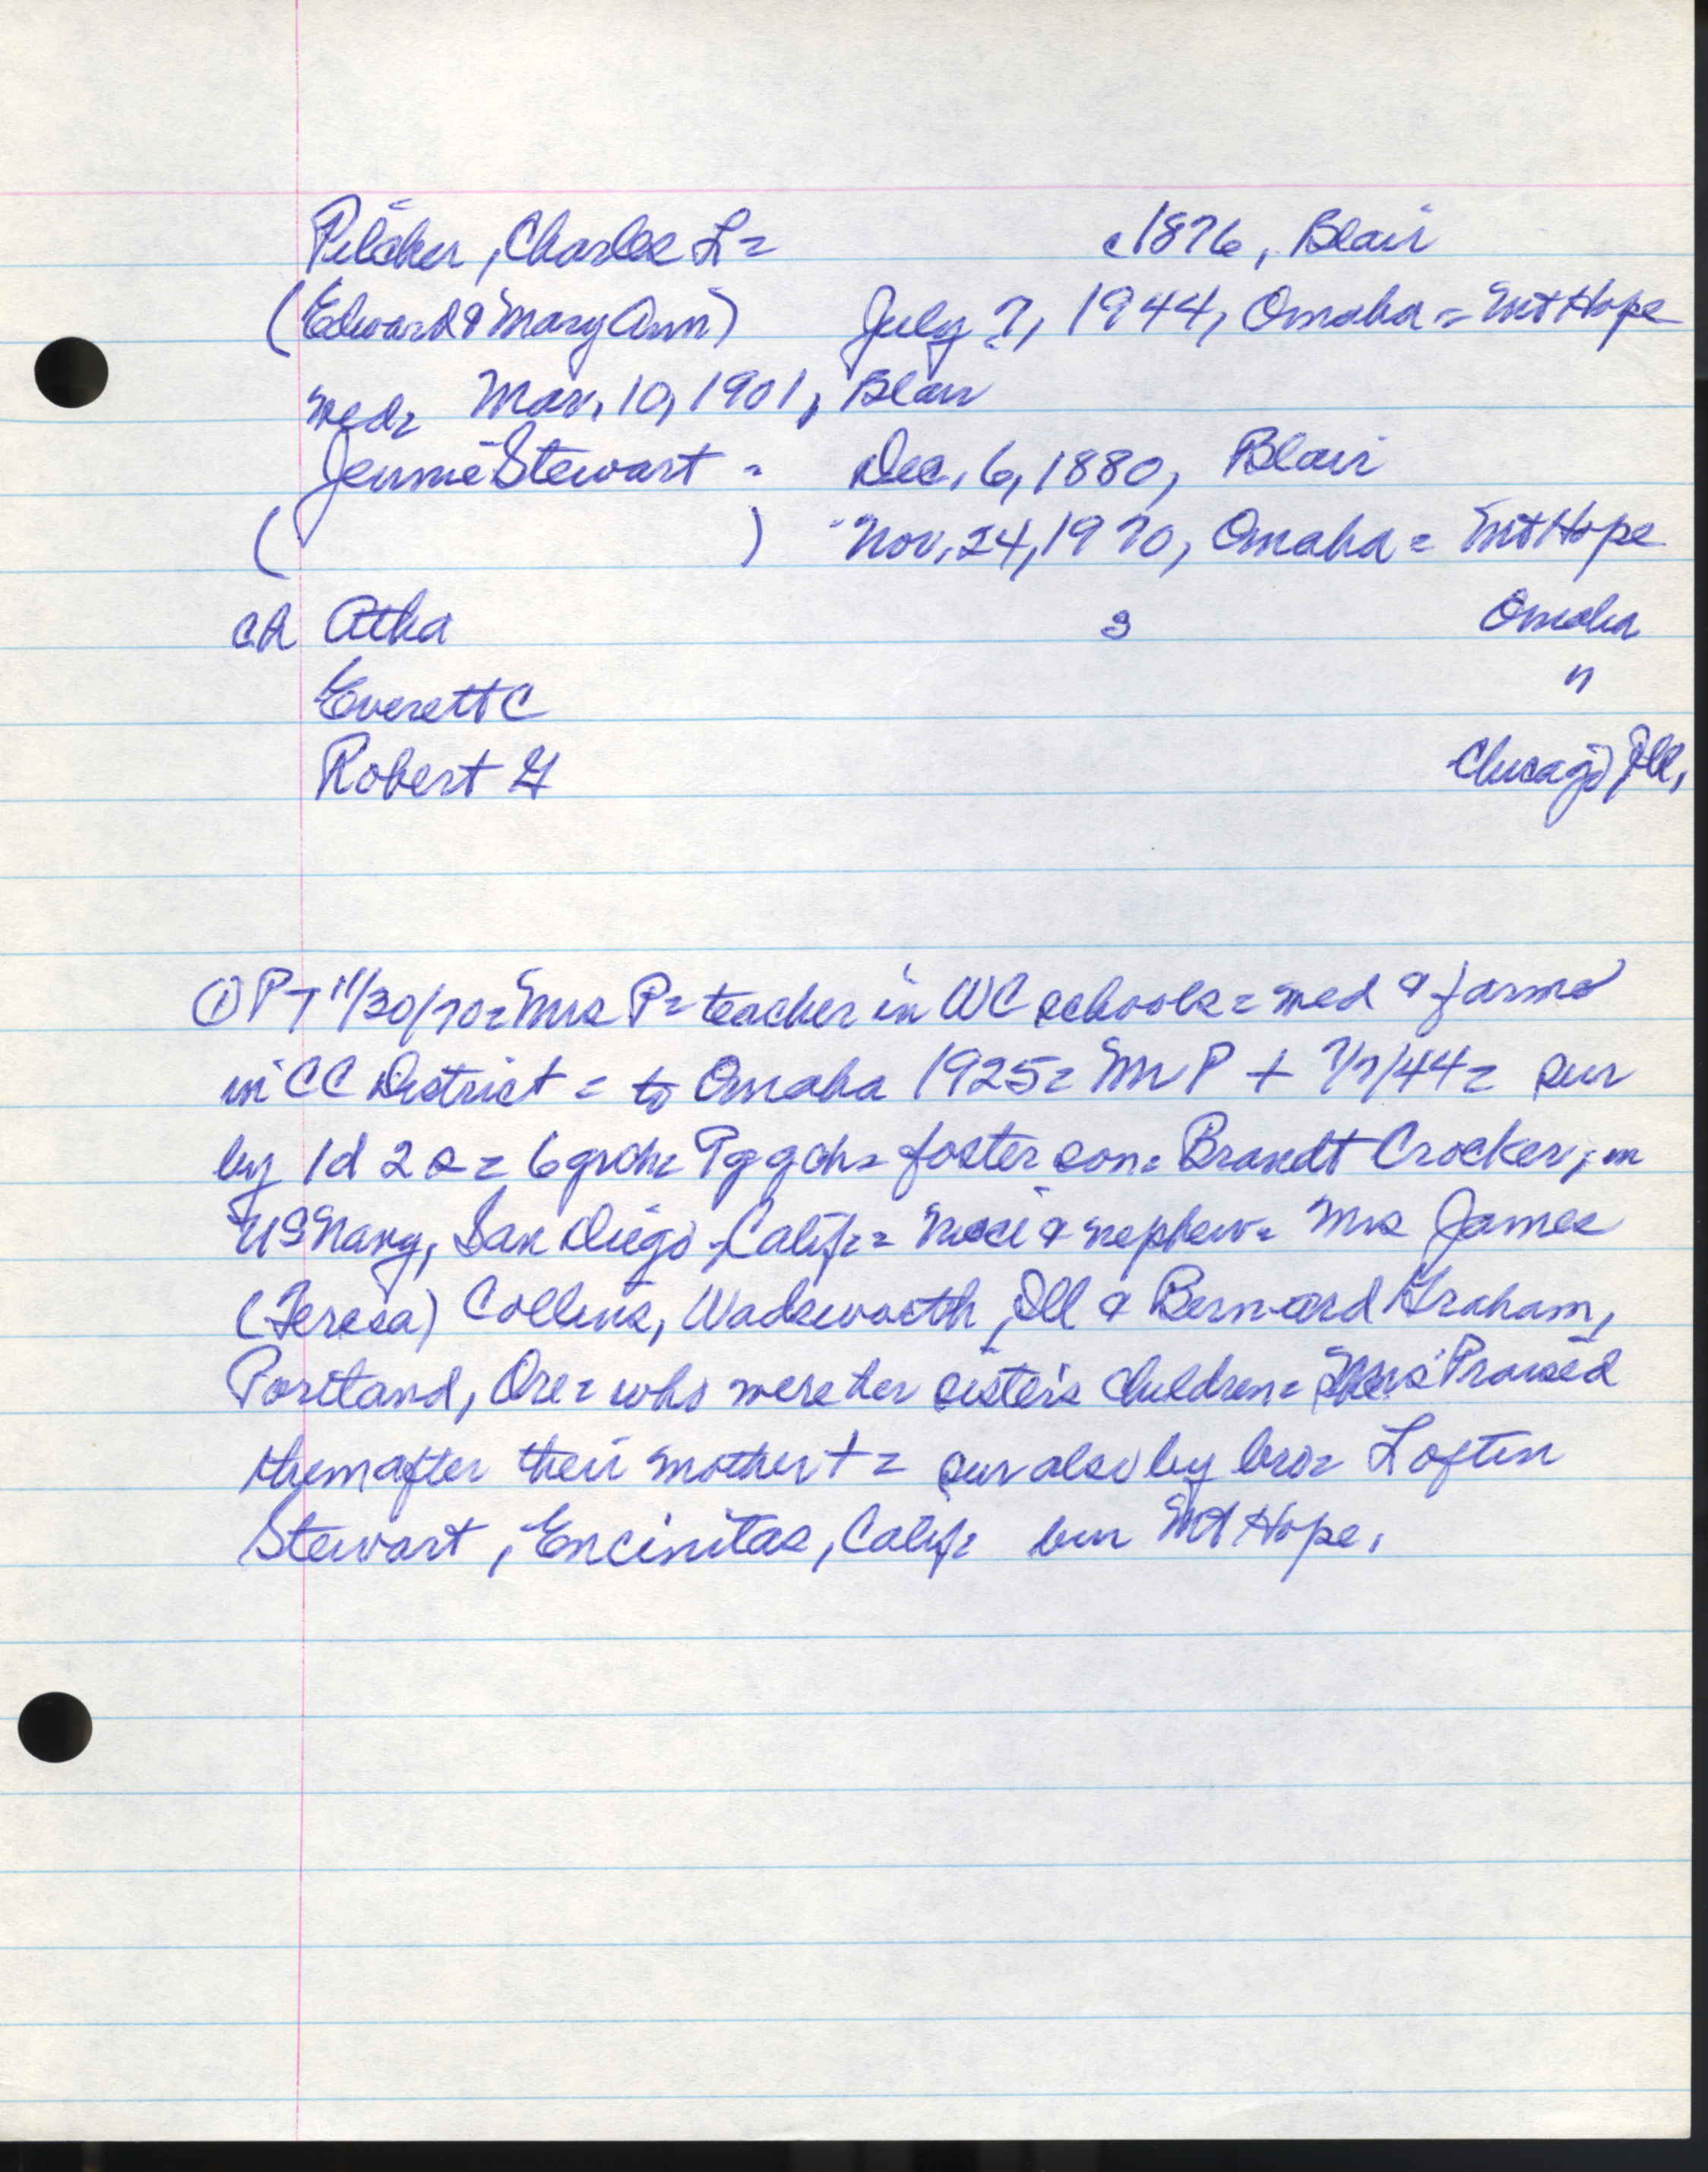 Pilcher, Charles L = c1876, Blair
(Edward & Mary Ann) July 7, 1944, Omaha = Mt Hope
med = Mar. 10, 1901, Blair
Jennie Stewart = Dec. 6, 1880, Blair
( ) Nov. 24, 1970, Omaha = Mt Hope
ch Atha s Omaha
Everett C "
Robert G Chicago, Ill.
① PT 11/30/70 = Mrs P = teacher in WC schools = med & farmed
in CC District = to Omaha 1925 = Mr P + 7/7/44 = sur
by 1d 2s = 6 grch = 7ggch = foster son = Brandt Crocker, in
US Navy, San Diego, Calif = niece & nephew = Mrs James
(Teresa) Collins, Wadsworth, Ill & Bernard Graham,
Portland, Ore = who were her sister's children = Mrs P raised
them after their mother + = sur also by bro = Loftin
Stewart, Encinitas, Calif = bur Mt Hope.